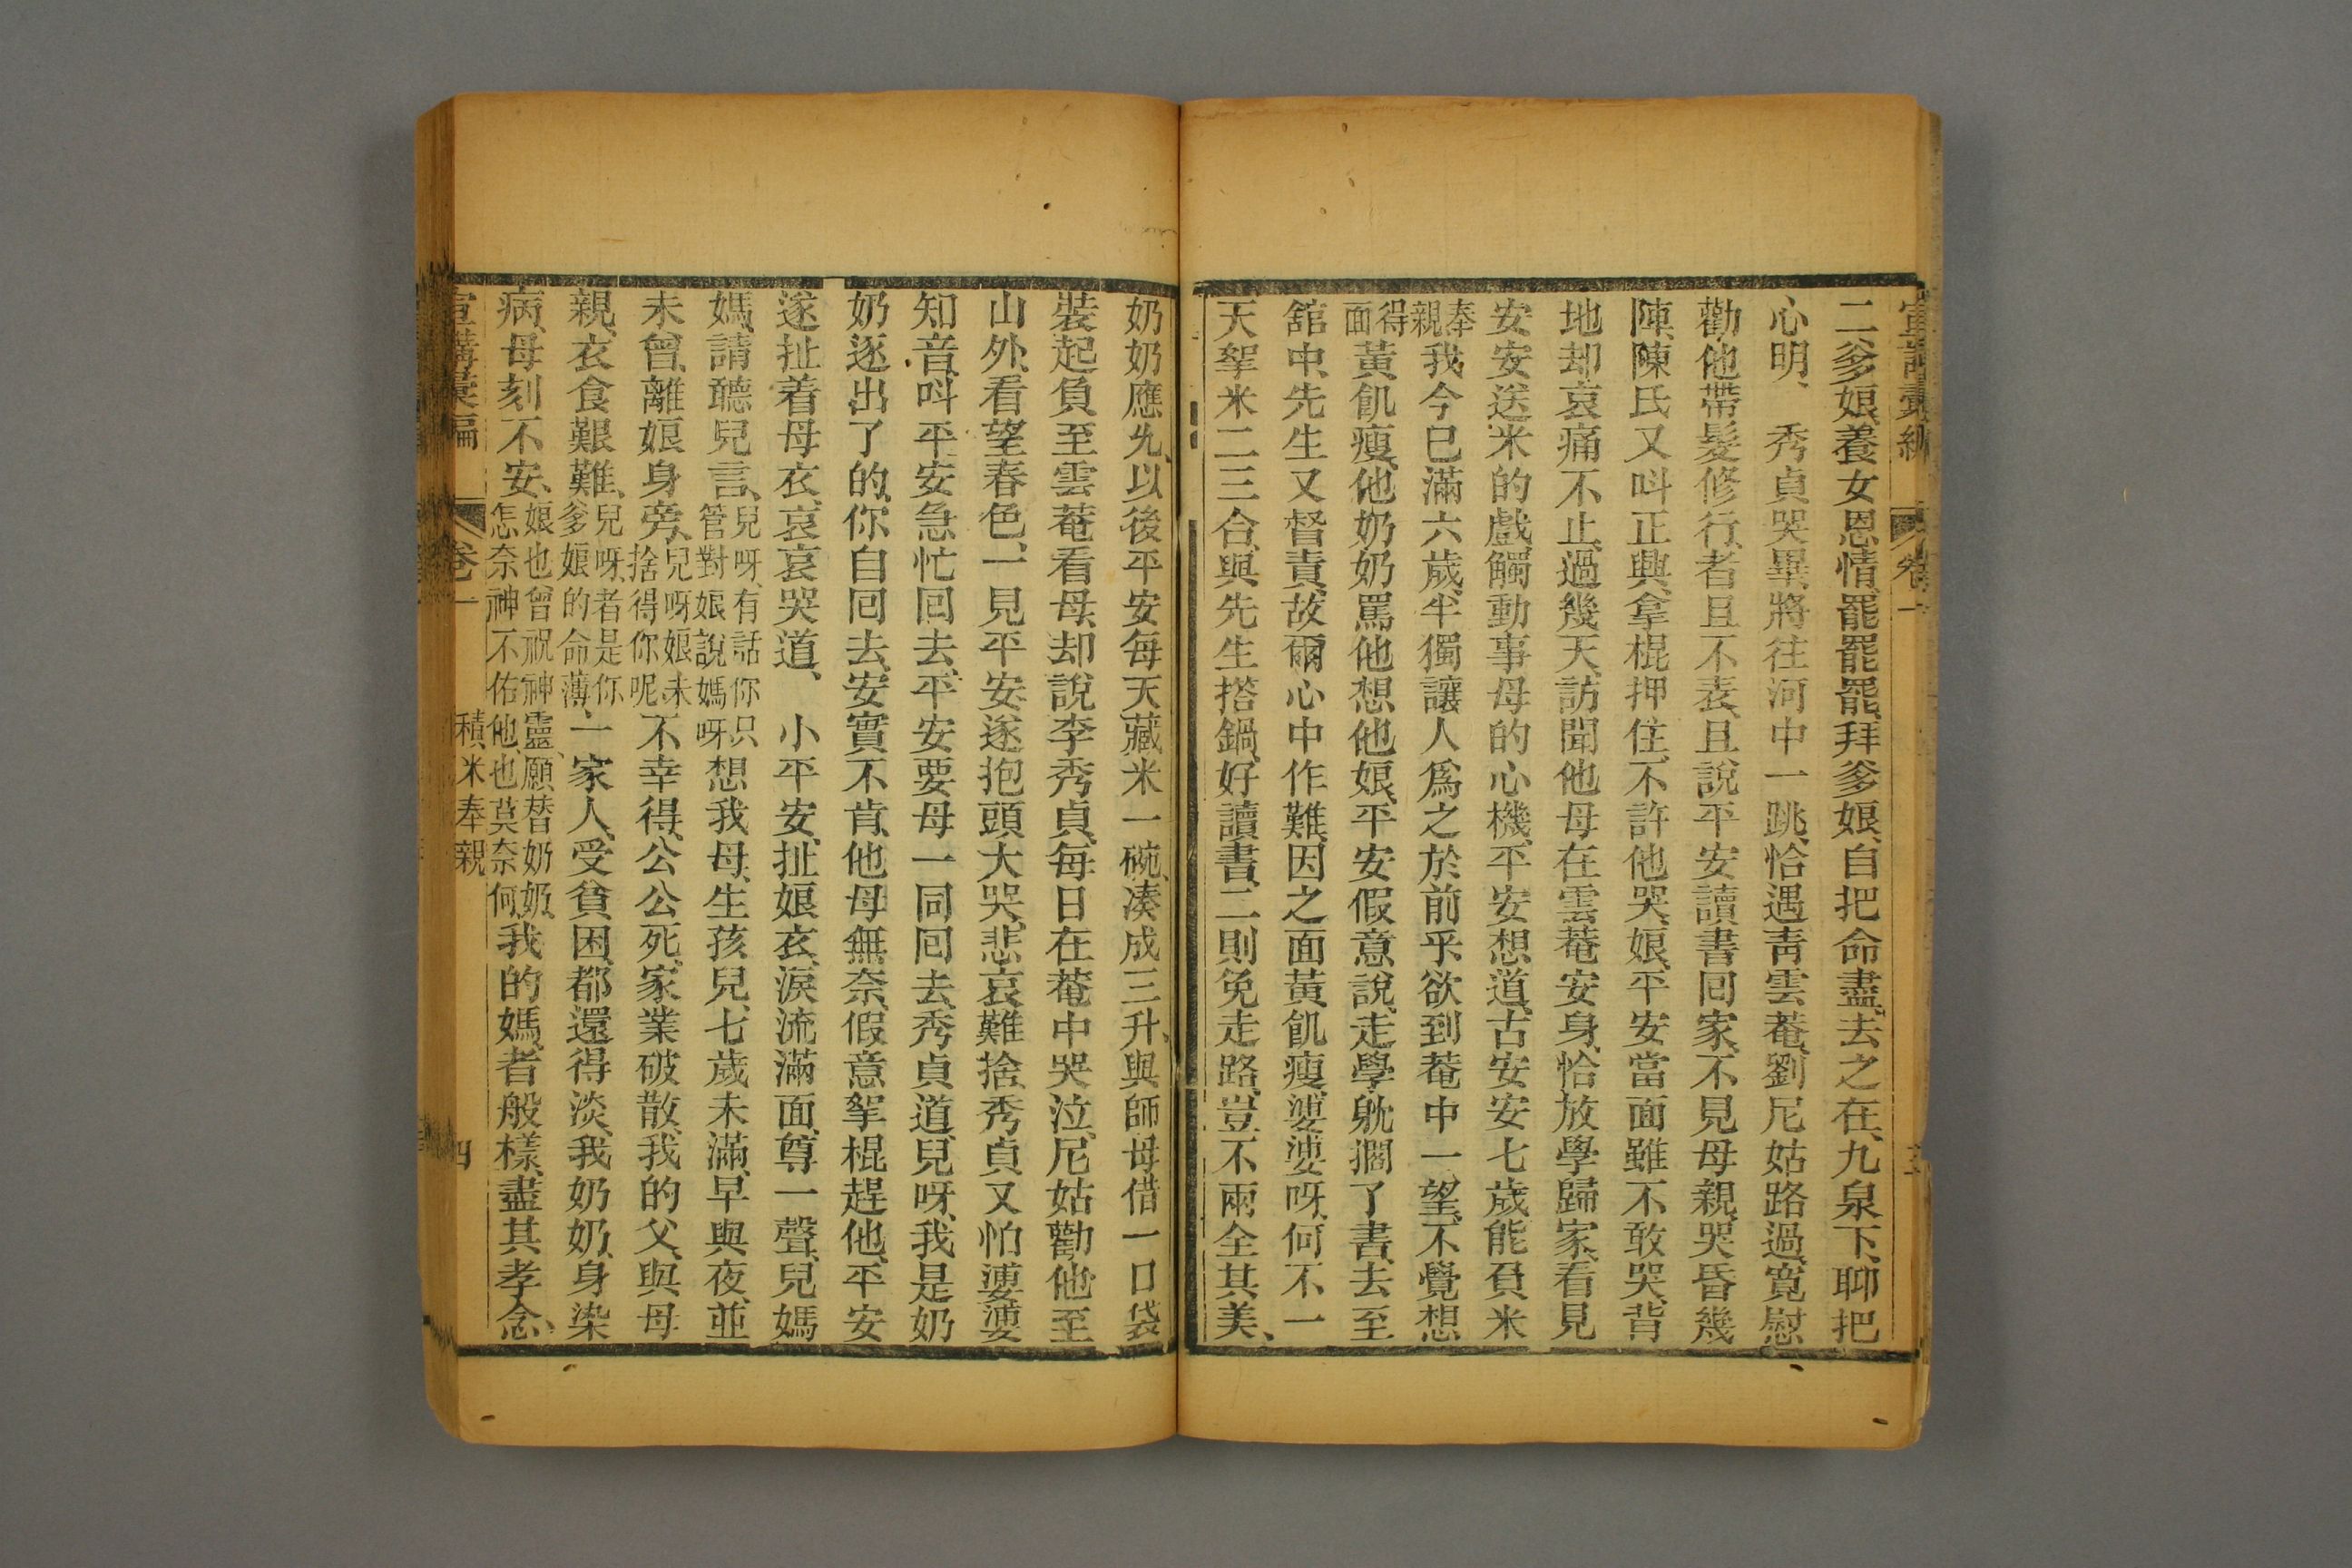 宣講彙編 卷一 三
二爹娘、養女恩情、罷罷罷、拜爹娘、自把命盡、去之在、九泉下、聊把
心明、 秀貞哭畢、將往河中一跳、恰遇靑雲菴、劉尼姑路過、寬慰
勸、他帶髮修行、者且不表、且說平安讀書回家、不見母親、哭昏幾
陣、陳氏又呌正興、拿棍押住、不許他哭、娘、平安當面雖不敢哭、背
地却哀痛不止、過幾天、訪聞他母在雲菴安身、恰放學歸家、看見
安安送米的戲、觸動事母的心機、平安想道、古安安七歲能負米
奉親我今已滿六歲半、獨讓人爲之於前乎、欲到菴中一望、不覺想
得面黃飢瘦、他奶奶罵他想他娘、平安假意說、走學躭擱了書、去至
舘中、先生又督責、故爾心中作難、因之面黃飢瘦、婆婆呀、何不一
天拏米二三合、與先生搭鍋、好讀書、二則免走路、豈不兩全其美、
奶奶應允、以後平安每天藏米一碗、凑成三升、與師母借一口袋
裝起負至雲菴看母、却說李秀貞、每日在菴中哭泣、尼姑勸他至
山外、看望春色、一見平安、遂抱頭大哭、悲哀難捨、秀貞又怕婆婆
知音、呌平安急忙回去、平安要母一同回去、秀貞道、兒呀、我是奶
奶逐出了的、你自回去、安實不肯、他母無奈、假意拏棍趕他、平安
遂扯着母衣、哀哀哭道、 小平安、扯娘衣、淚流滿面、尊一聲、兒媽
媽、請聽兒言、兒呀、有話你只管對娘說媽呀想我母、生孩兒、七歲未滿、早與夜、並
未曾、離娘身旁、兒呀娘未捨得你呢不幸得、公公死、家業破散、我的父、與母
親、衣食艱難、兒呀、者是你爹娘的命薄一家人、受貧困、都還得淡、我奶奶、身染
病、母刻不安、娘也曾祝神靈、願替奶奶、怎奈神不佑他、也莫奈何、我的媽、者般樣、盡其孝念、
宣講彙編 卷一 積米奉親 四